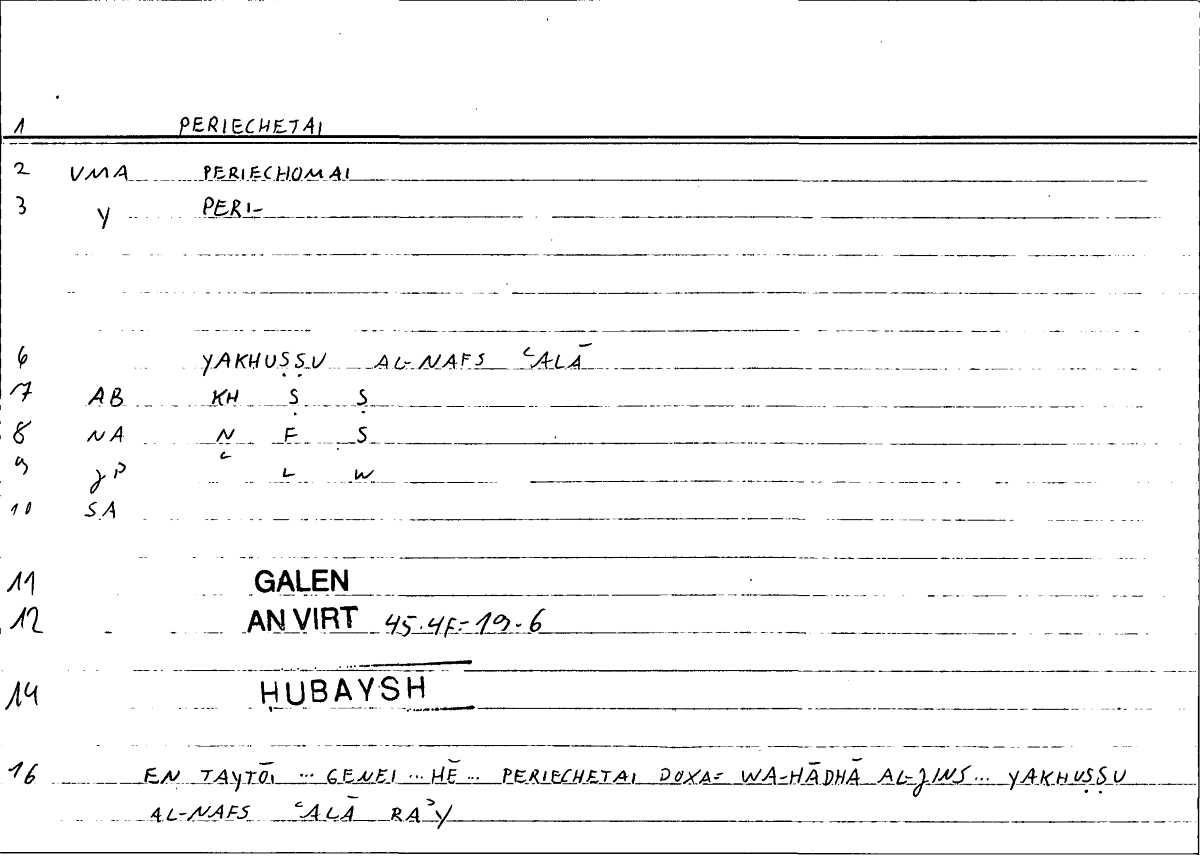 1 PERIECHETAI
2 VMA PERIECHOMAI
3 Y PERI-
6 YAKHUṢṢU AL-NAFS ʿALĀ
7 AB KH Ṣ Ṣ
8 NA N F S
9 JP ʿ L W
10 SA
11 GALEN
12 AN VIRT 45.4f=19.6
14 ḤUBAYSH
16 EN TAYTŌI ... GENEI ... HĒ ... PERIECHETAI DOXA= WA-HĀDHĀ AL-JINS ... YAKHUṢṢU
AL-NAFS ʿALĀ RAʾY